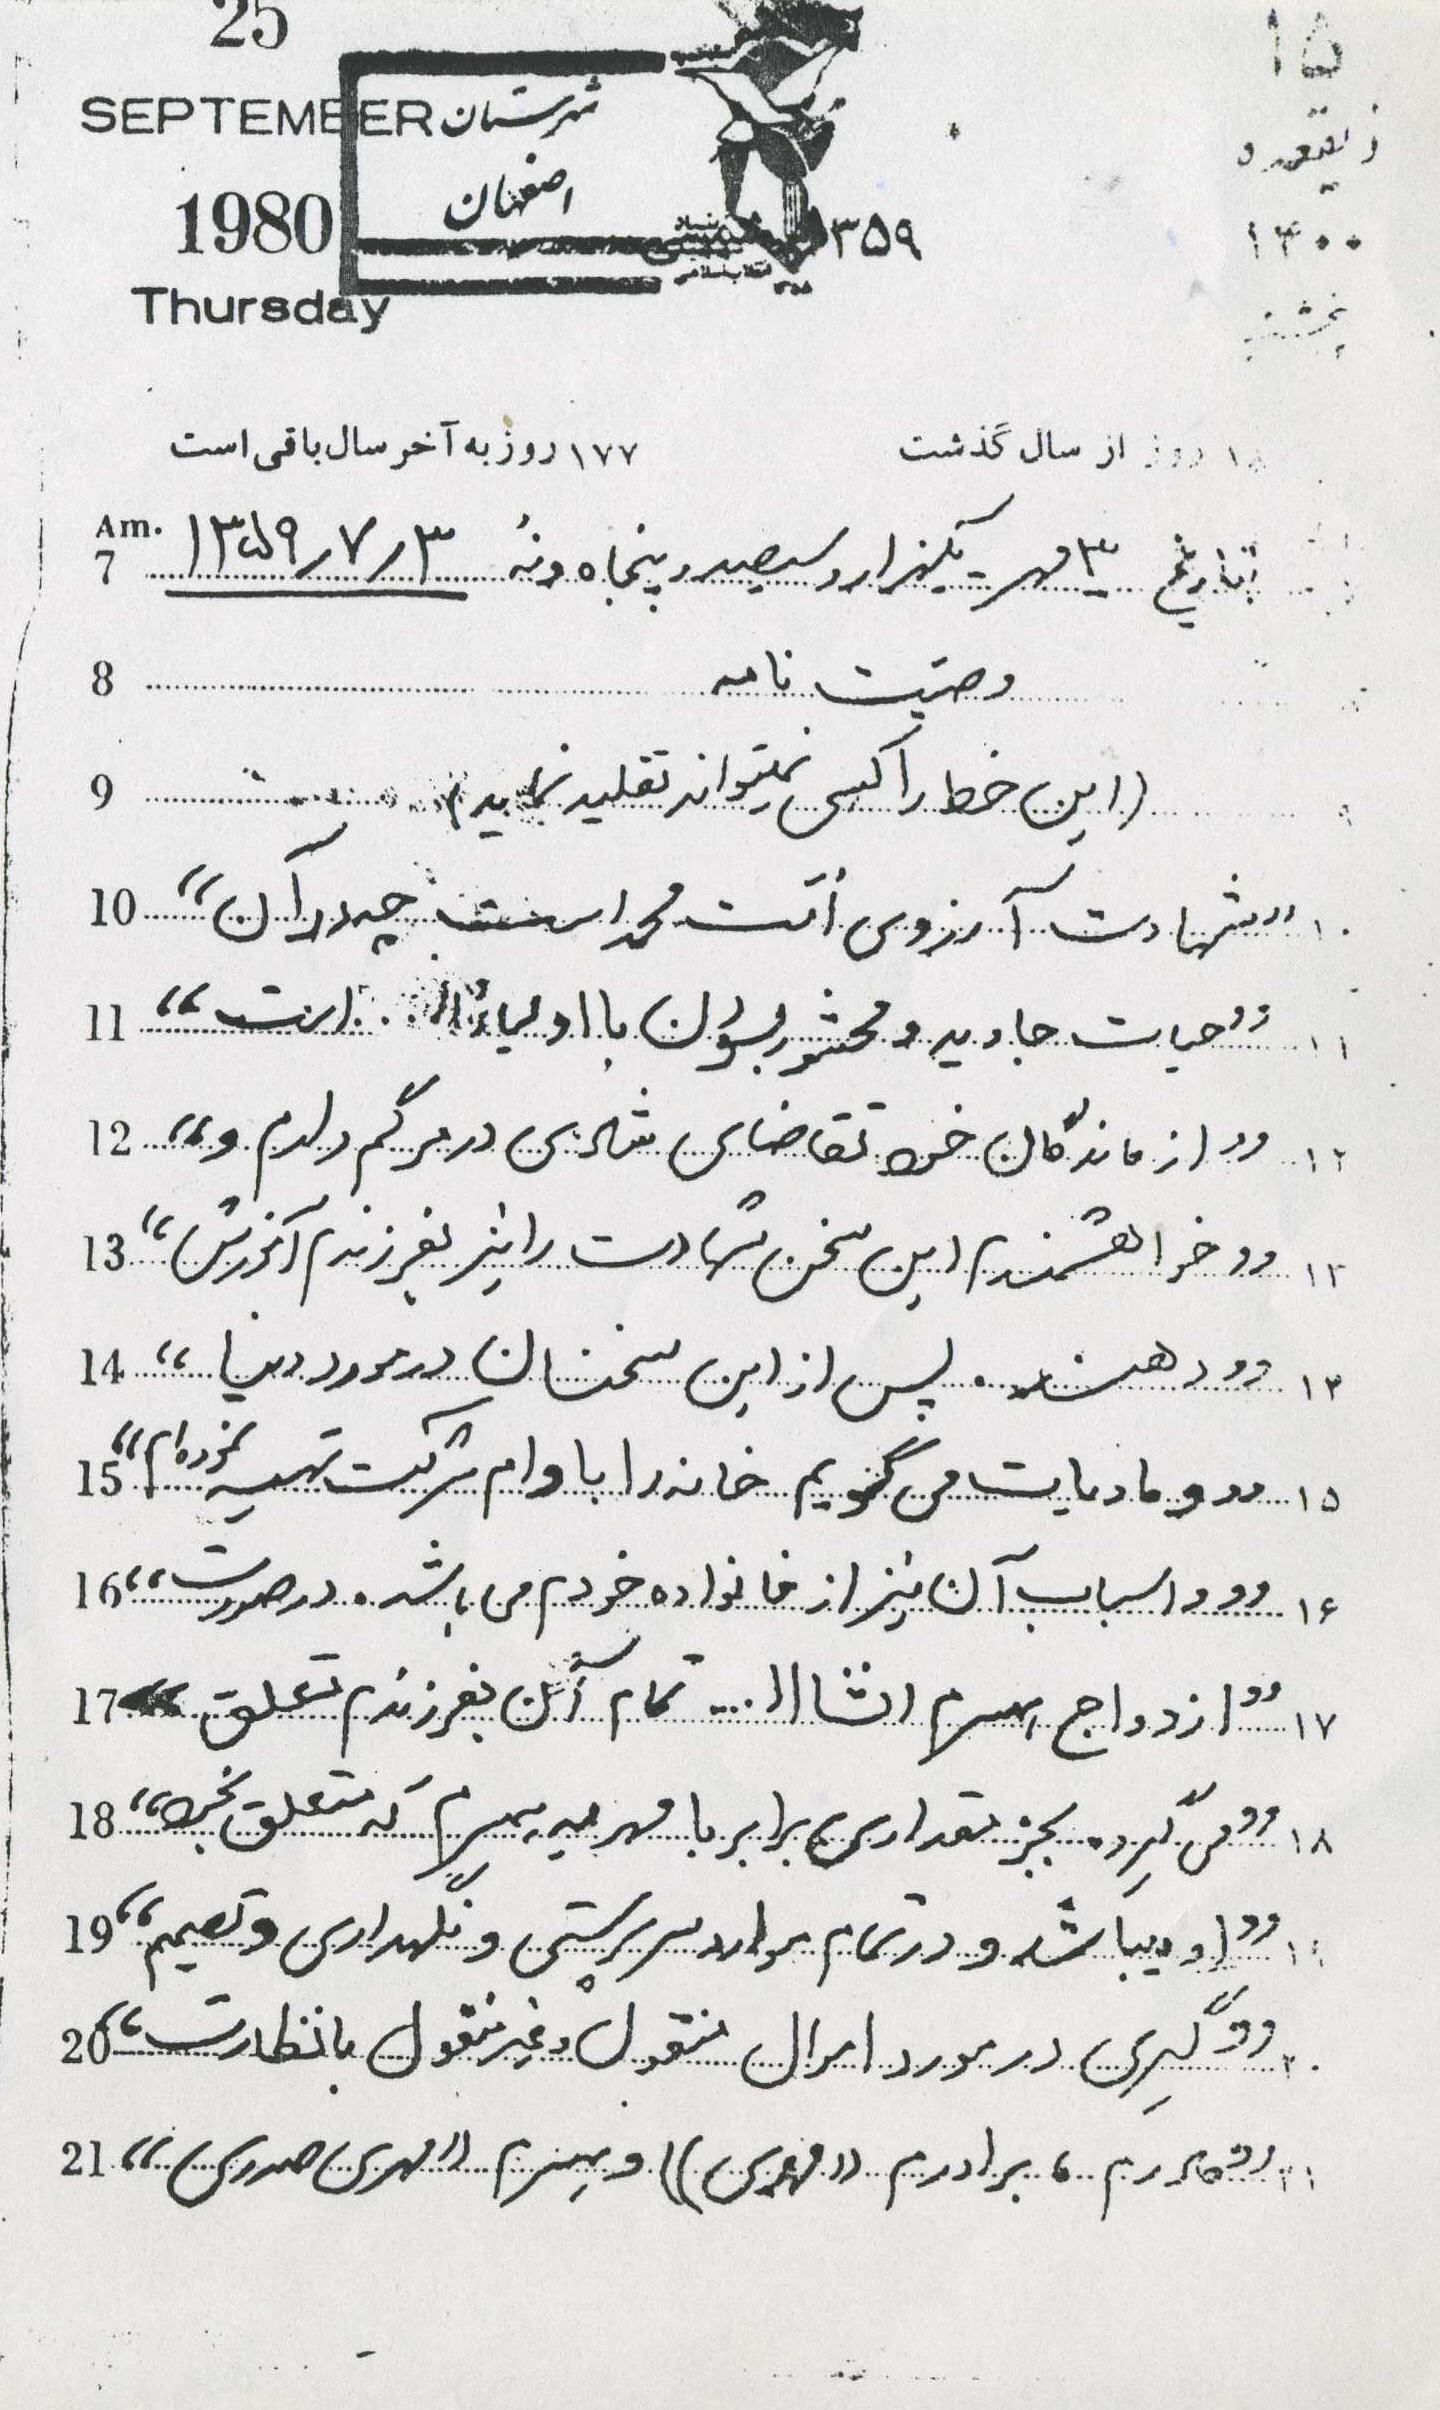 25
۱۵
SEPTEMBER
شهرستان
ذیقعده
اصفهان
1980
۱۳۵۹
۱۴۰۰
Thursday
پنجشنبه
روز از سال گذشت
۱۷۷ روز به آخر سال باقی است
Am.
7 بتاریخ ۳ مهر یکهزار و سیصد و پنجاه و نه ۱۳۵۹/۷/۳
8 وصیت نامه
9 (این خط را کسی نمیتواند تقلید نماید)
10 ۱۰ "شهادت آرزوی امت محمد است چه در آن"
11 ۱۱ "حیات جاوید و محشور بودن با اولیاء ا... است"
12 ۱۲ "از ماندگان خود تقاضای شادی در مرگم دارم و"
13 ۱۳ "خواهشمندم این سخن شهادت را نیز بفرزندم آموزش"
14 ۱۴ "دهند. پس از این سخنان در مورد دنیا"
15 ۱۵ "و مادیایت می گویم خانه را با وام شرکت تهیه نموده ام"
16 ۱۶ "و اسباب آن نیز از خانواده خودم می باشد. در صورت"
17 ۱۷ "ازدواج همسرم انشاا... تمام آن بفرزندم تعلق"
18 ۱۸ "می گیرد. بجز مقداری برابر با مهریه همسرم که متعلق بخود"
19 ۱۹ "او میباشد و در تمام موارد سرپرستی و نگهداری و تصمیم"
20 ۲۰ "گیری در مورد اموال منقول و غیر منقول با نظارت"
21 ۲۱ "مادرم، برادرم "مهدی" و همسرم "مهری صدری"